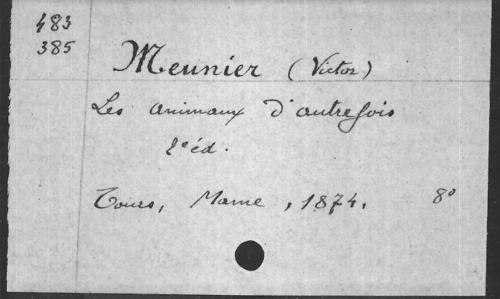 483
385
Meunier (Victor)
Les animaux d'autrefois
2e éd.
Tours, Mame, 1874. 8°